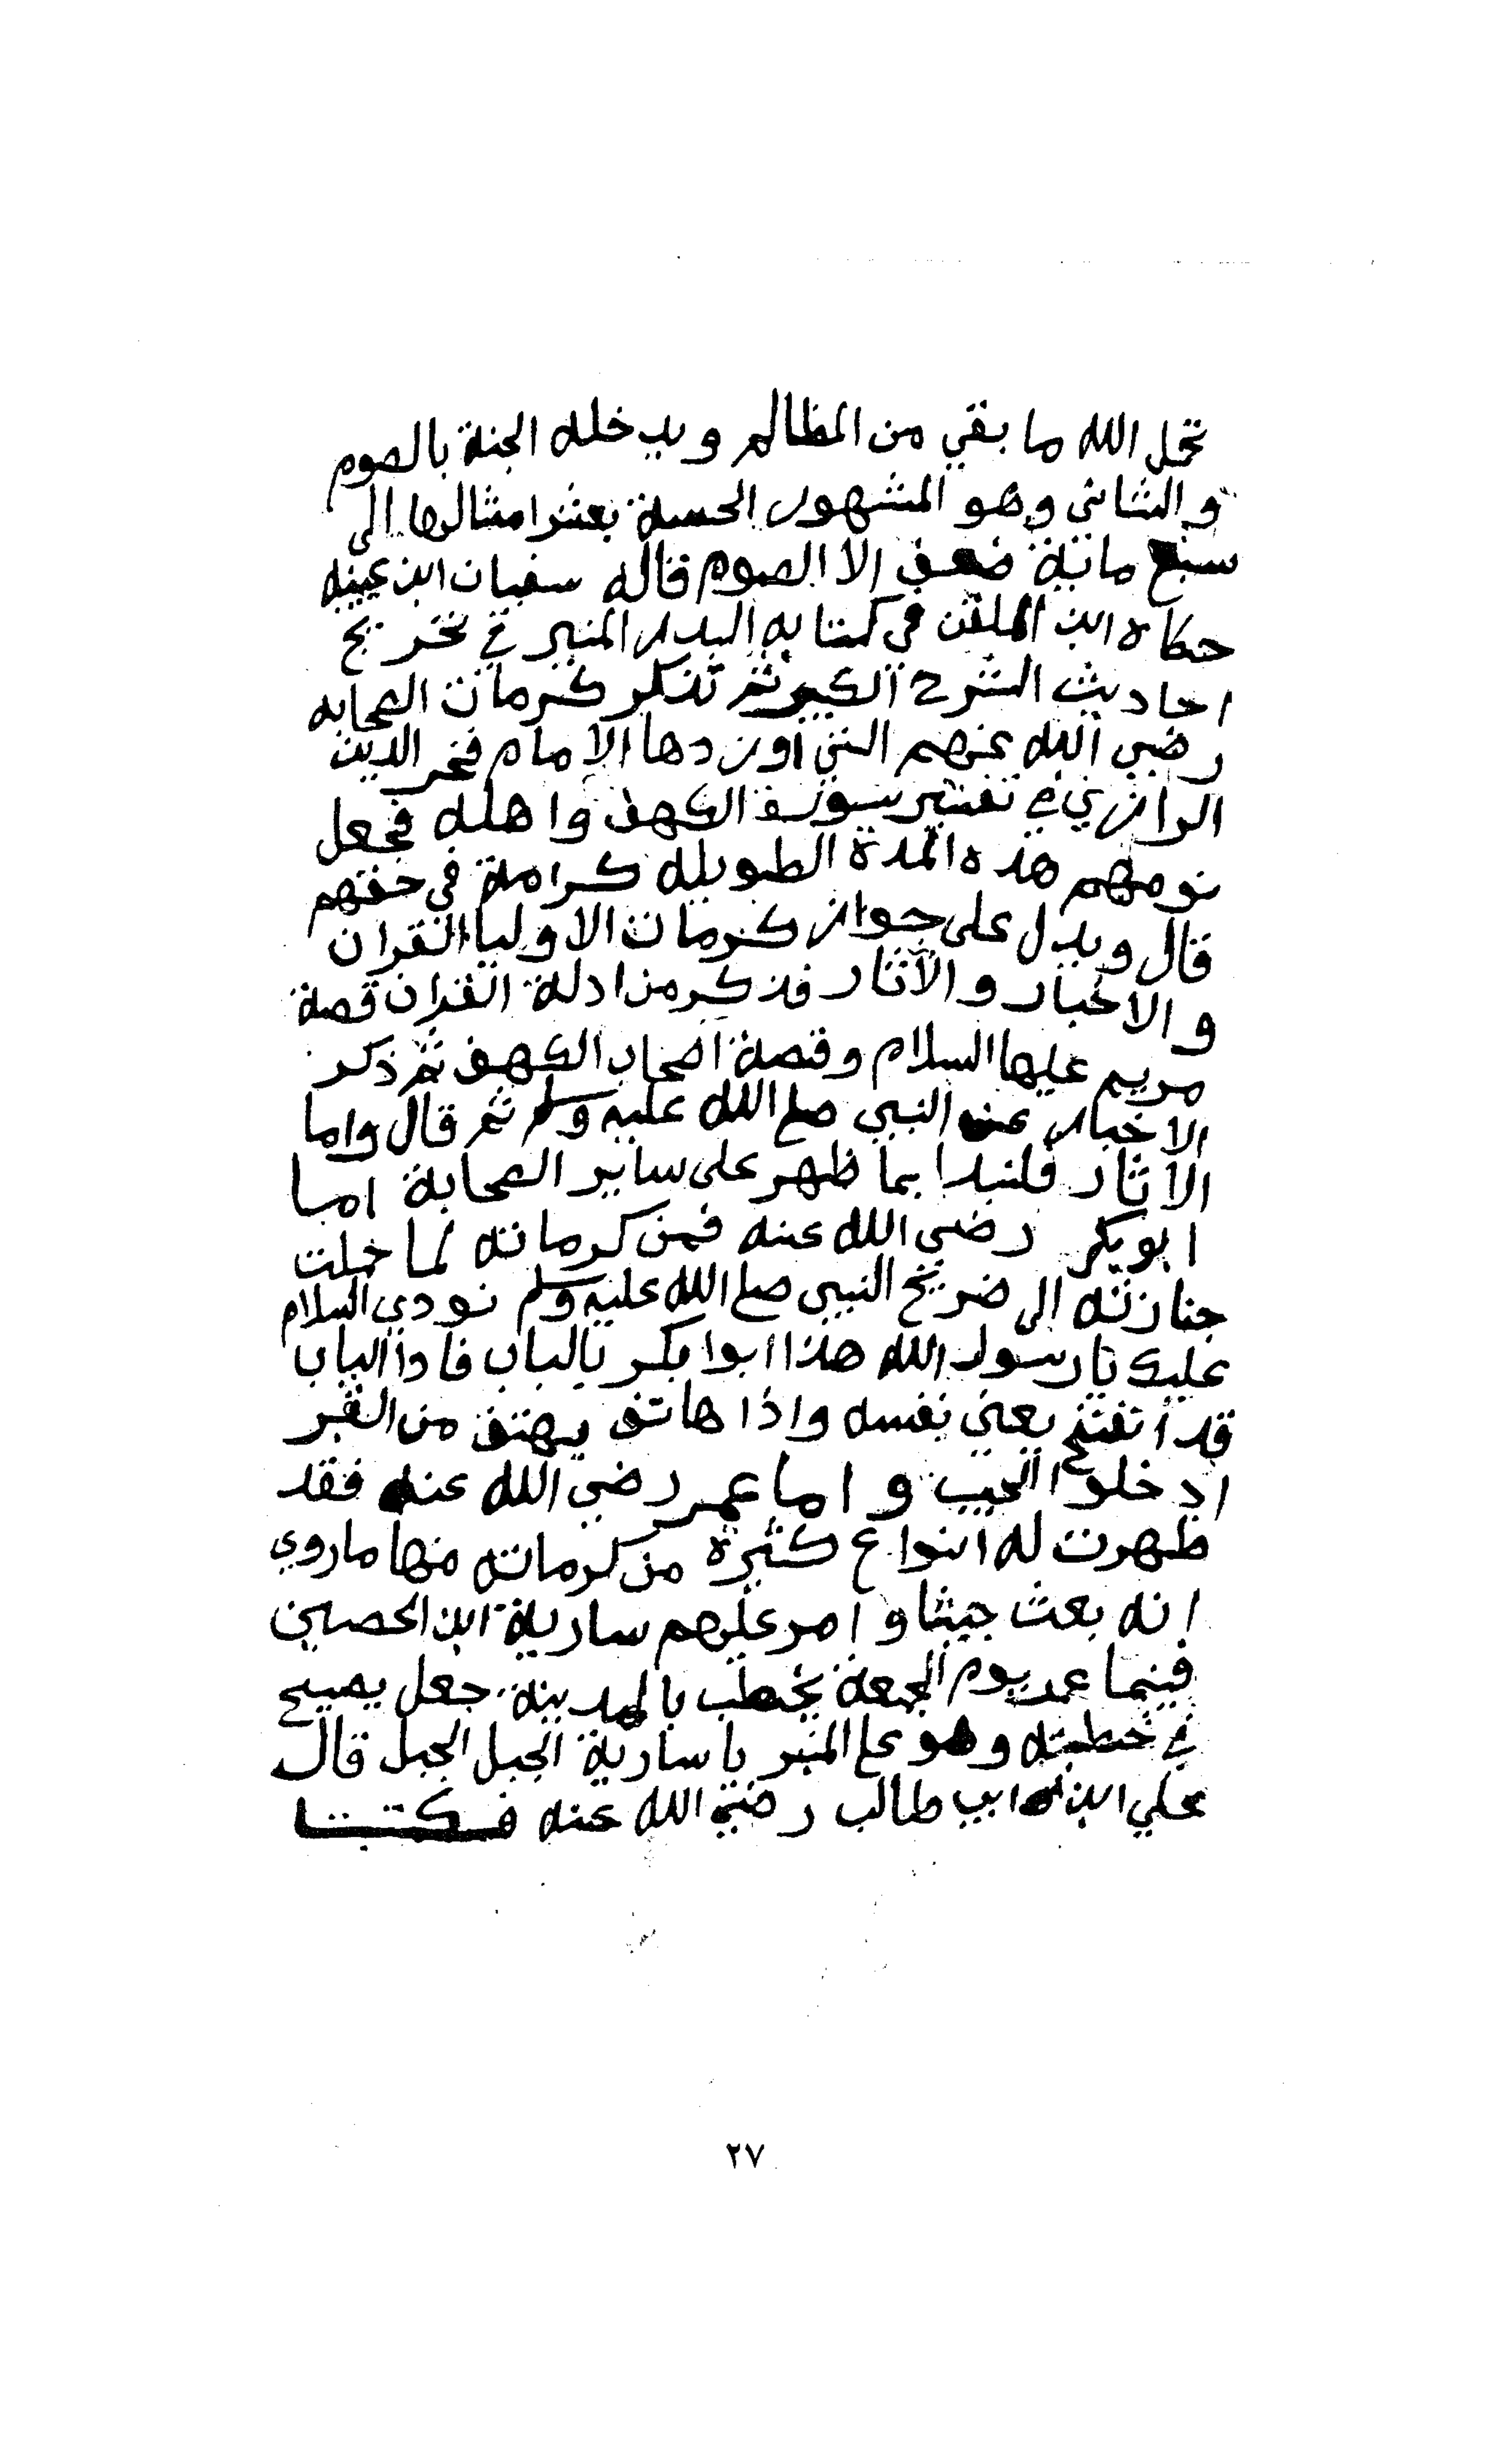 تحمل الله ما بقي من المظالم ويدخله الجنة بالصوم
والثاني وهو المشهور الحسنة بعشر امثالها الى
سبع مائة ضعف الا الصوم قاله سفيان ابن عيينه
حكاه ابن الملقن في كتابه البدر المنير في تخريج
احاديث الشرح الكبير ثم تذكر كرمات الصحابه
رضي الله عنهم التي اوردها الامام فخر الدين
الرازي في تفسير سورة الكهف واهله فجعل
نومهم هذه المدة الطويله كرامة في حقهم
قال ويدل على جواز كرمات الاوليا القران
والاخبار والآثار فذكر من ادلة القران قصة
مريم عليها السلام وقصة اصحاب الكهف ثم ذكر
الاخبار عن النبي صلى الله عليه وسلم ثم قال واما
الاثار فلنبدا بما ظهر على ساير الصحابة اما
ابو بكر رضي الله عنه فمن كرماته لما حملت
جنازته الى ضريح النبي صلى الله عليه وسلم نودي السلام
عليك يا رسول الله هذا ابوا بكر بالباب فاذا الباب
قد انفتح يعني بنفسه واذا هاتف يهتف من القبر
ادخلو الحبيب واما عمر رضي الله عنه فقد
ظهرت له انواع كثيرة من كرماته منها ما روي
انه بعث جيشا وامر عليهم سارية ابن الحصين
فينما عمر يوم الجمعة يخطب بالمدينة جعل يصيح
في خطبته وهو على المنبر يا سارية الجبل الجبل قال
علي ابن ابي طالب رضي الله عنه فكتبنا
٢٧